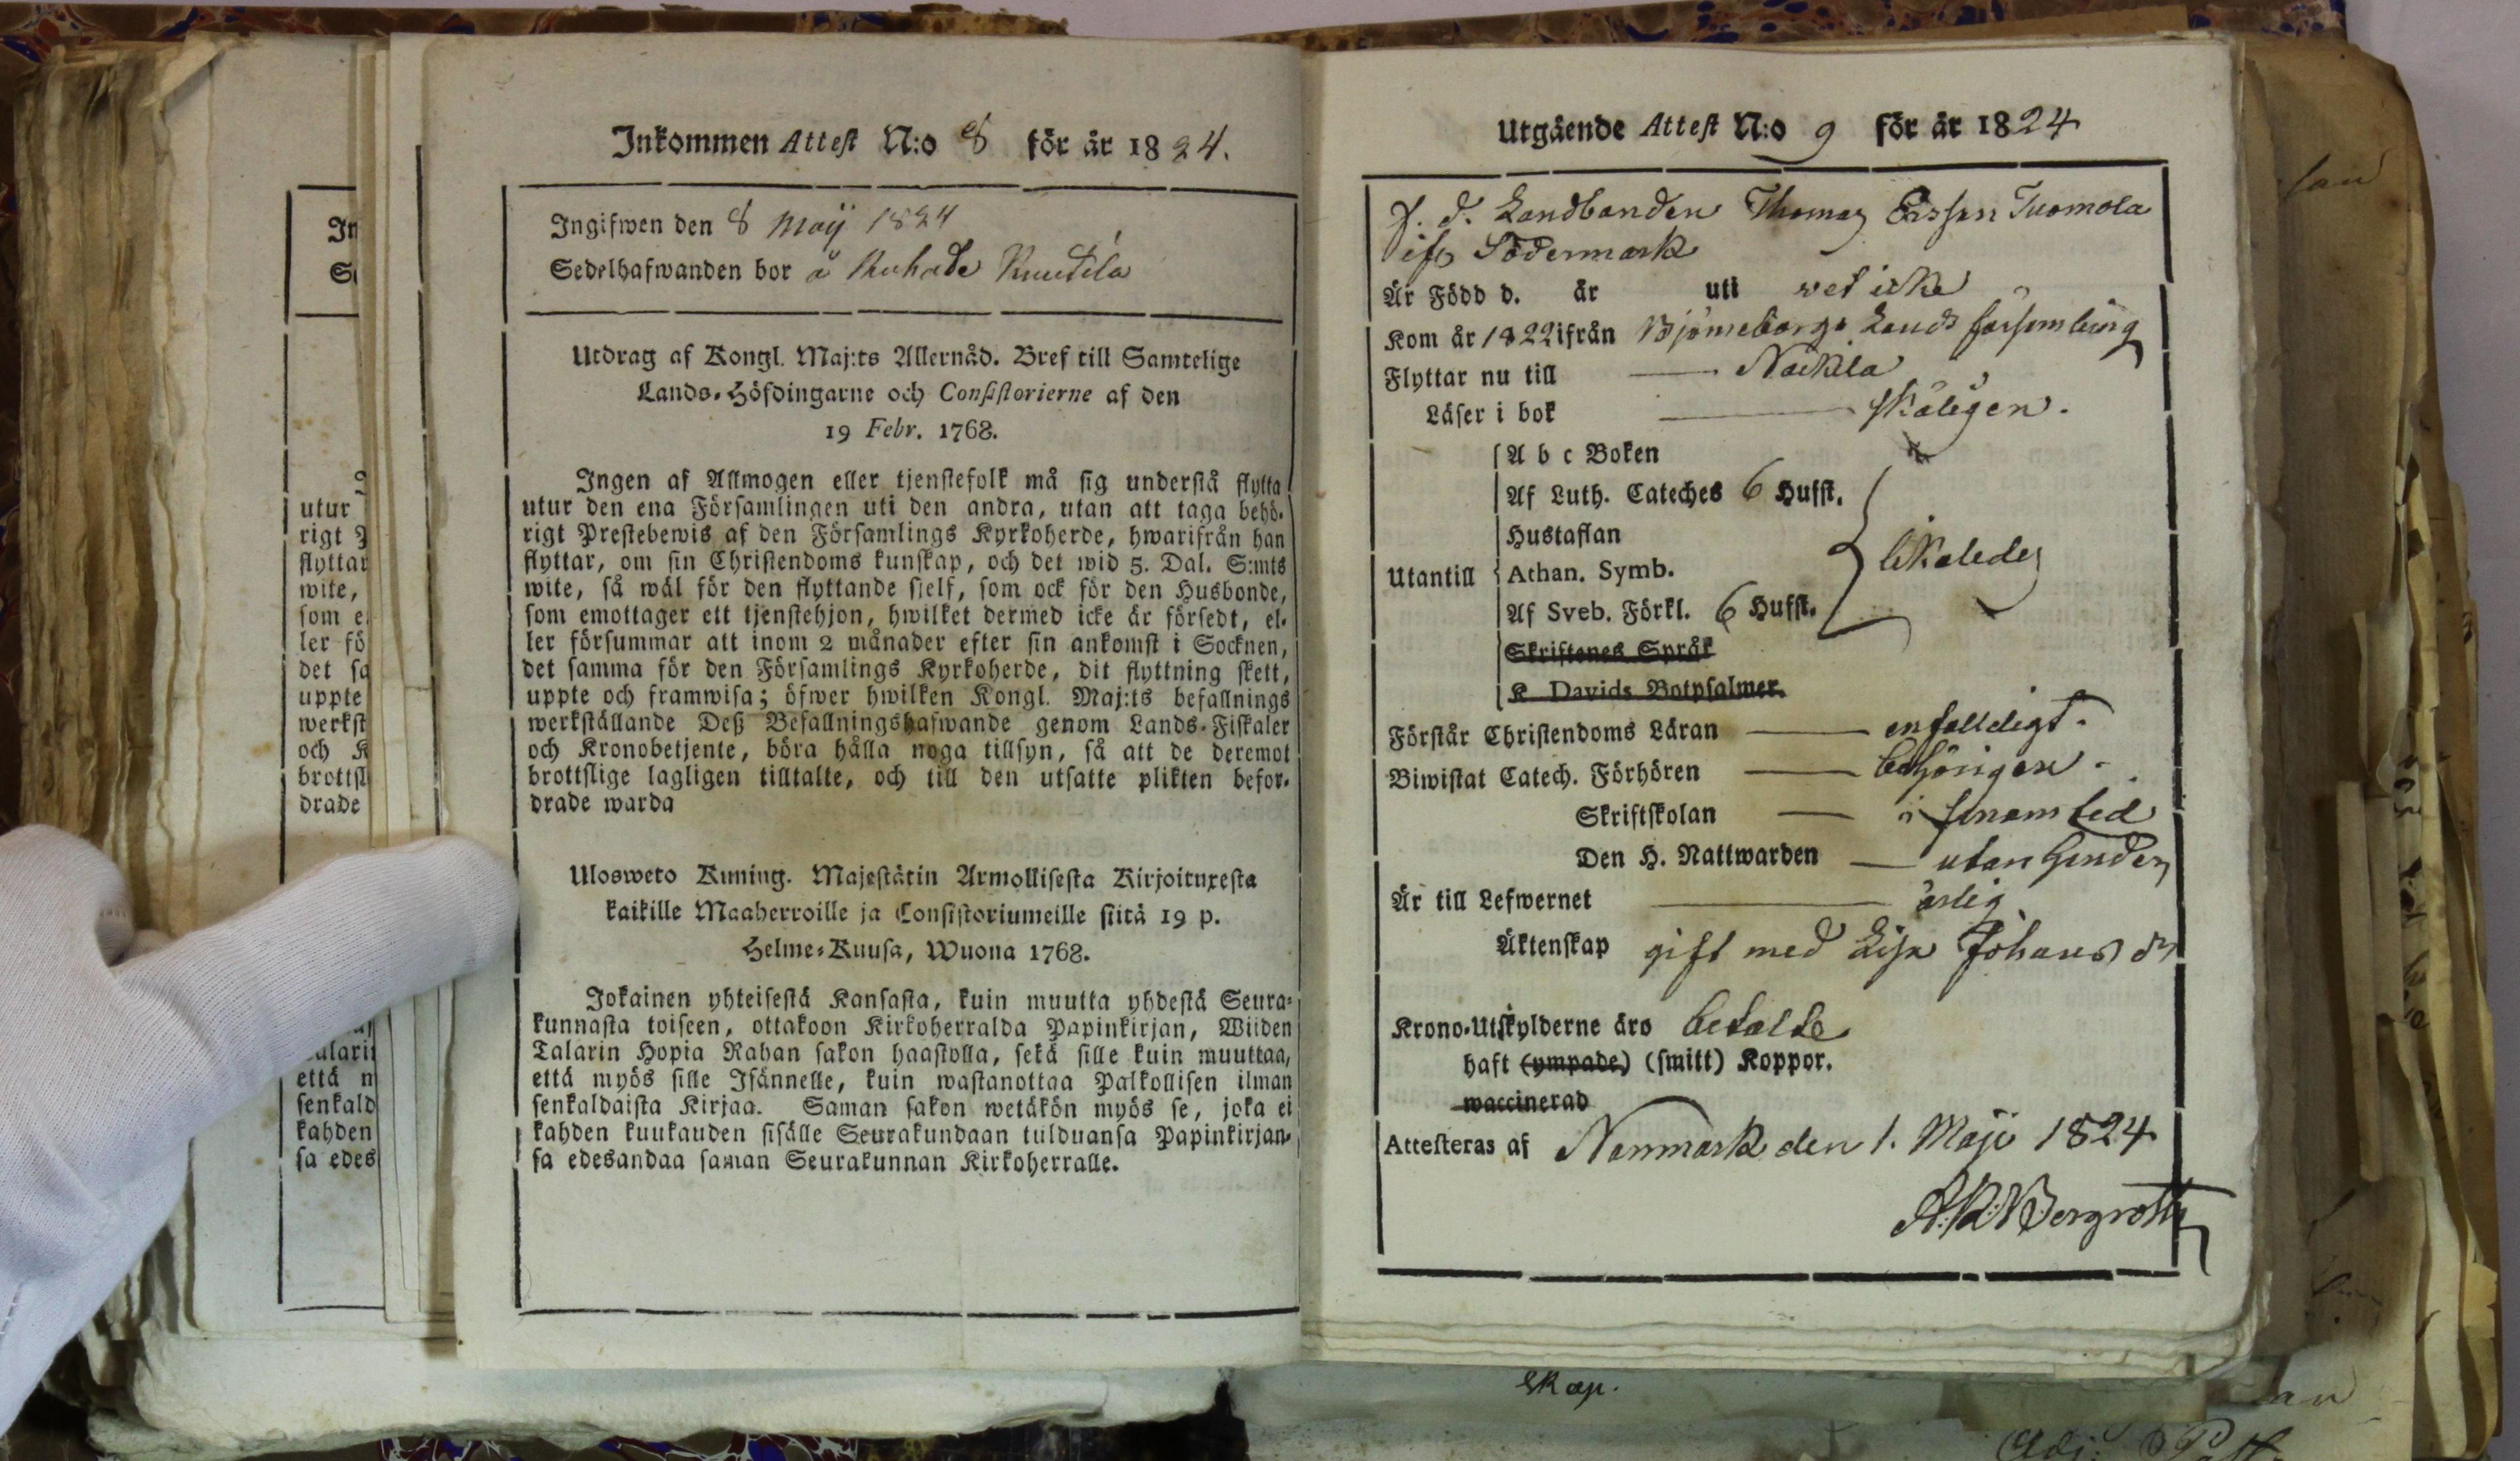 Inkommen Attest N:o 8 för år 1824.
Ingifwen den 8 Maij 1824
Sedelhafwanden bor å
Utdrag af Kongl. Maj:ts Allernåd. Bref till Samtelige
Lands-Höfdingarne och Consistorierne af den
19 Febr. 1768.
Ingen af Allmogen eller tjenstefolk må sig understå flytta
utur den ena Församlingen uti den andra, utan att taga behö-
rigt Prestebewis af den Församlings Kyrkoherde, hwarifrån han
flyttar, om sin Christendoms kunskap, och det wid 5. Dal. S:mts
wite, så wäl för den flyttande sielf, som ock för den Husbonde,
som emottager ett tjenstehjon, hwilket dermed icke är försedt, el-
ler försummar att inom 2 månader efter sin ankomst i Socknen,
det samma för den Församlings Kyrkoherde, dit flyttning skett,
uppte och framwisa; öfwer hwilken Kongl. Maj:ts befallnings
werkställande Deß Befallningshafwande genom Lands-Fiskaler
och Kronobetjente, böra hålla noga tillsyn, så att de deremot
brottslige lagligen tilltalte, och till den utsatte plikten befor-
drade warda
Ulosweto Kuning. Majestätin Armollisesta Kirjoituxesta
kaikille Maaherroille ja Consistoriumeille siitä 19 p.
Helme-Kuusa, Wuona 1768.
Jokainen yhteisestä Kansasta, kuin muutta yhdestä Seura-
kunnasta toiseen, ottakoon Kirkoherralda Papinkirjan, Wiiden
Talarin Hopia Rahan sakon haastolla, sekä sille kuin muuttaa,
että myös sille Isännelle, kuin wastanottaa Palkollisen ilman
senkaldaista Kirjaa. Saman sakon wetäkön myös se, joka ei
kahden kuukauden sisälle Seurakundaan tulduansa Papinkirjan-
sa edesandaa saman Seurakunnan Kirkoherralle.
Utgående Attest N:o 9 för år 1824
f. d. Landbonden Thomas Ersson Tuomola
ifr. Södermark
Är Född d. år uti vet icke
Kom år 1822 ifrån Björneborgs Lands församling
Flyttar nu till Nackila
Läser i bok skäligen.
A b c Boken
Af Luth. Cateches 6 Hufst.
Hustaflan
Utantill Athan. Symb. likaledes
Af Sveb. Förkl. 6 Hufst.
Skriftenes Språk
K Davids Botpsalmer.
Förstår Christendoms Läran enfalldigt.
Biwistat Catech. Förhören behörigen.
Skriftskolan i sinom tid
Den H. Nattwarden utan hinder
Är till Lefwernet ärlig
Äktenskap gift med Lisa Johansdr
Krono-Utskylderne äro betalte
haft (ympade) (smitt) Koppor.
waccinerad
Attesteras af Norrmark den 1. Maji 1824